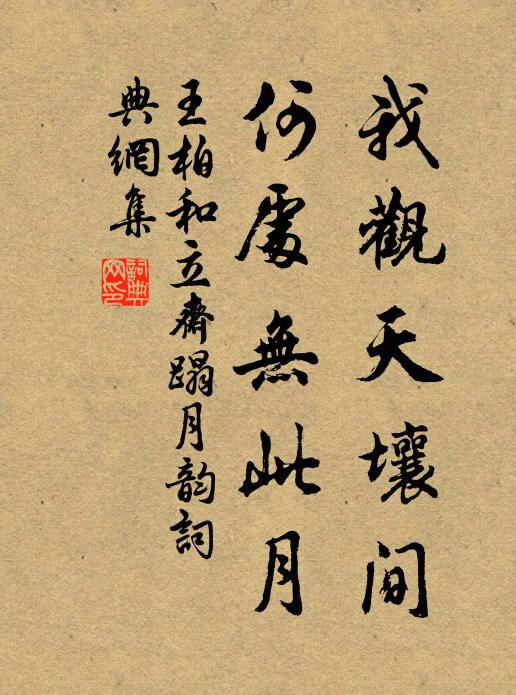 我觀天壤間
何處無此月
王柏和立齋蹋月韵詞
典網集
詞典
网印